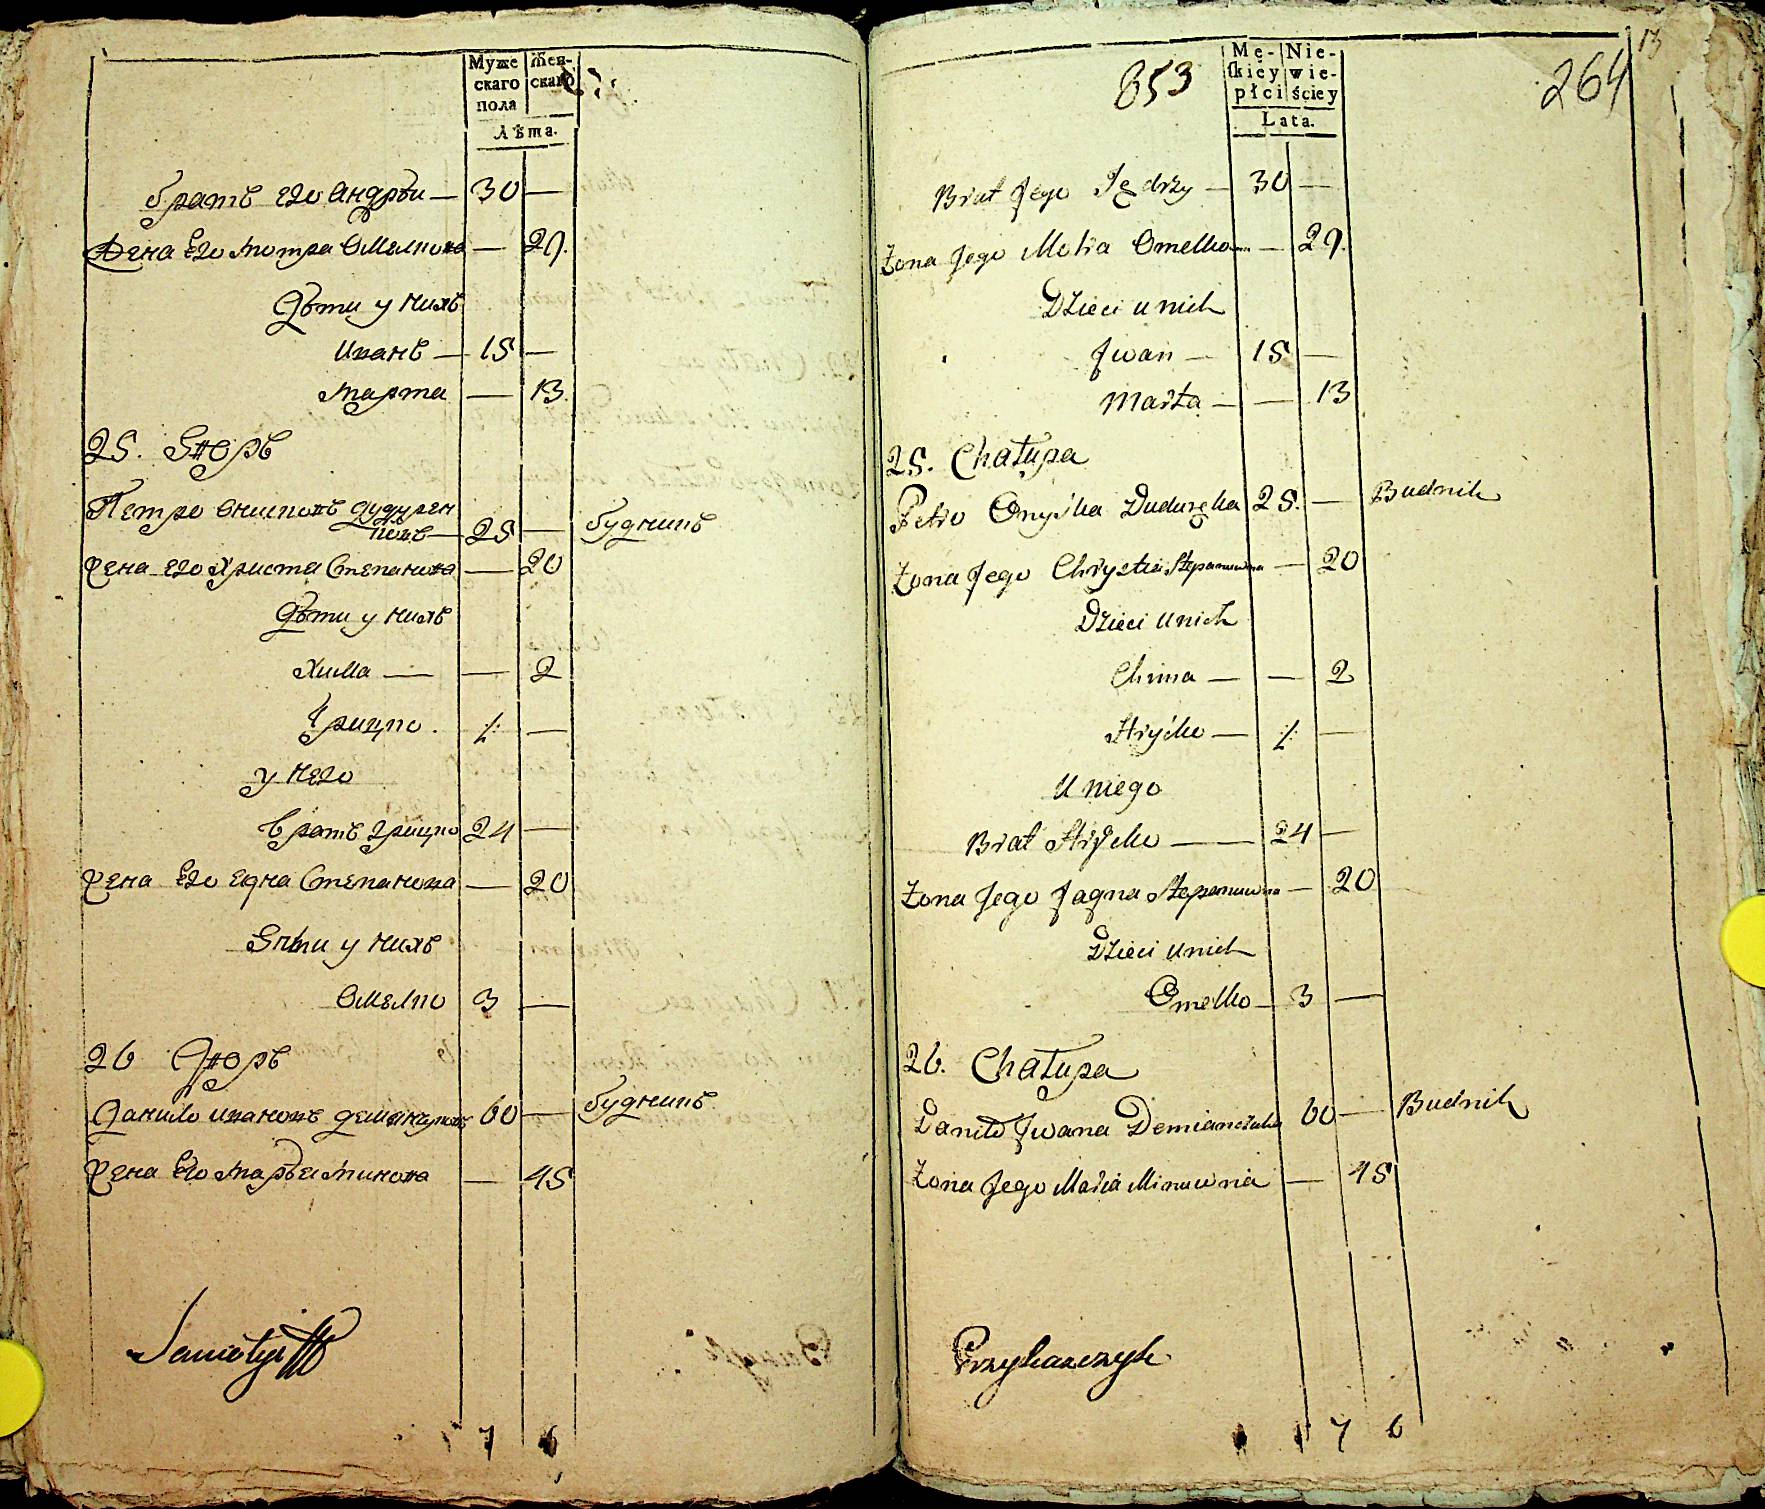 Муже Жен-
скаго скаго
пола
Лѣта.
братъ его Андрѣи — 30 —
Жена Его мотра Омелкова — 29.
Дѣти у нихъ
иванъ — 15 —
марта — 13.
25. Дворъ
Петро Онисковъ дудурен
ковъ — 25 — будникъ
Жена его Христа Степанова — 20
Дѣти у нихъ
Хима — — 2
Грицко. ½ —
у него
братъ грицко 24 —
Жена Его Ягна Степанова — 20
Дѣти у нихъ
Омелко 3 —
26 Дворъ
Данило ивановъ демянчуковъ 60 — будникъ
Жена Его марья минова — 45
7 6
853
13
264
Mę- Nie-
skiey wie-
płci ściey
Lata.
Brat Jego Jędrzy — 30 —
Żona Jego Motra Omelkow — 29.
Dzieci u nich
Jwan — 15 —
Marta — — 13
25. Chałupa
Petro Onyśka Dudureka 25. — Budnik
Żona Jego Chrystia Stepanowna — 20
Dzieci u nich
Chima — — 2
Hryćko — ½ —
U niego
Brat Hryćko — 24 —
Żona Jego Jagna Stepanowna — 20
Dzieci u nich
Omelko — 3 —
26. Chałupa
Daniło Jwana Demianczuka 60 — Budnik
Żona Jego Maria Minowna — 45
7 6